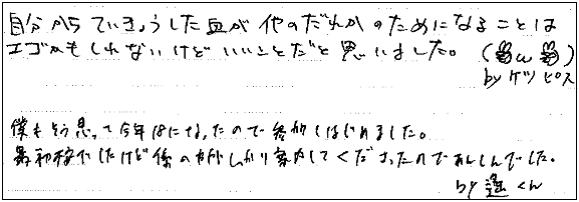 自分からていきょうした血が他のだれかのためになることは
エゴかもしれないけどいいことだと思いました。
by ケツピス
僕もそう思って今年18になったので はじめました。
最初 でしたけど係の しっかり案内してくださったのであんしんでした。
by 遥くん